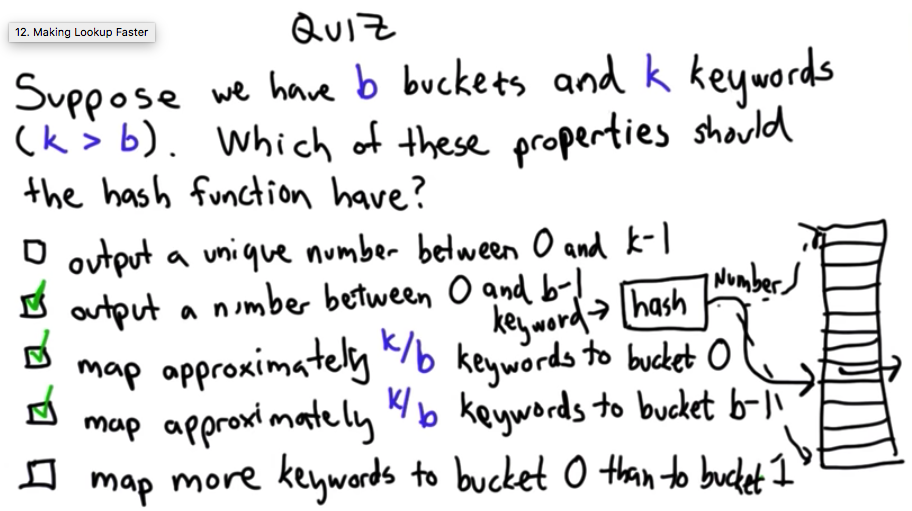 12. Making Lookup Faster
QUIZ
Suppose we have b buckets and k keywords
(k > b). Which of these properties should
the hash function have?
output a unique number between 0 and k-1
output a number between 0 and b-1
keyword
hash
Number
map approximately k/b keywords to bucket 0
map approximately k/b keywords to bucket b-1
map more keywords to bucket 0 than to bucket 1